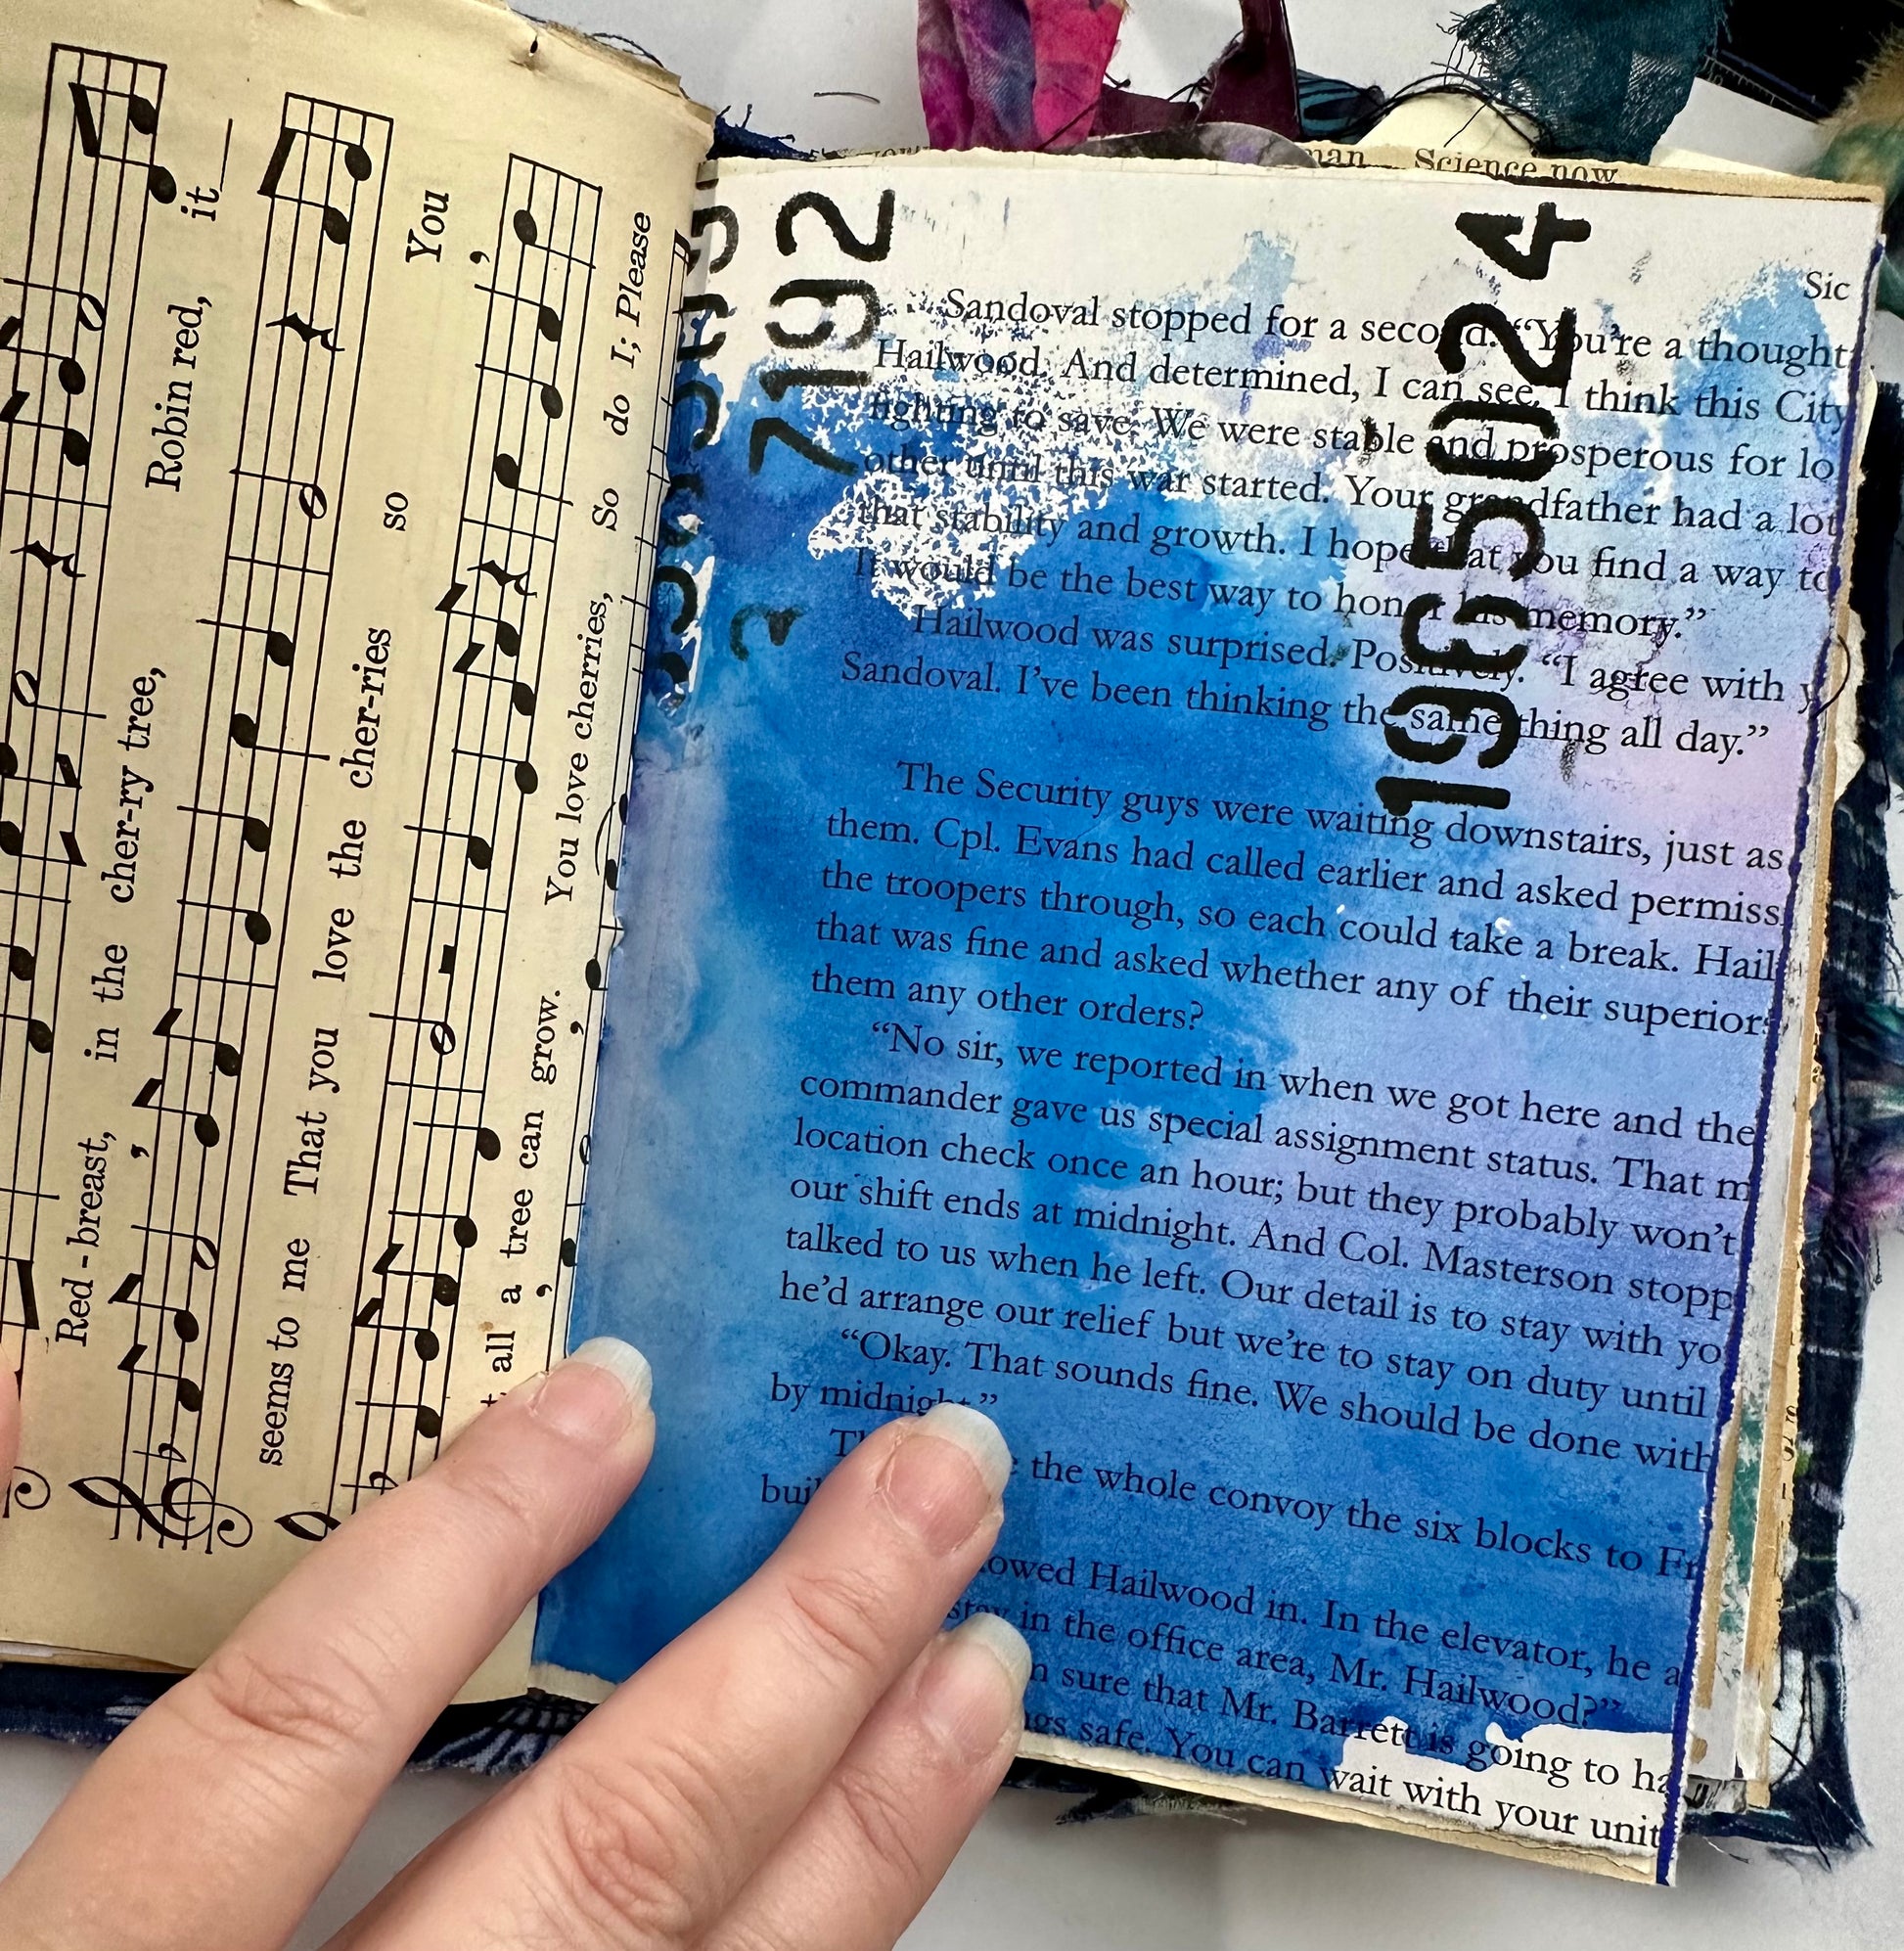 it
Robin red,
in the cher-ry tree,
Red-breast,
You
so
seems to me That you love the cher-ries
So do I; Please
You love cherries,
all a tree can grow.
man Science now
7192
2
1965024
Sic
Sandoval stopped for a second. “You’re a thought
Hailwood. And determined, I can see. I think this City
fighting to save. We were stable and prosperous for lo
other until this war started. Your grandfather had a lot
that stability and growth. I hope that you find a way to
It would be the best way to honor his memory.”
Hailwood was surprised. Positively. “I agree with y
Sandoval. I’ve been thinking the same thing all day.”
The Security guys were waiting downstairs, just as
them. Cpl. Evans had called earlier and asked permiss
the troopers through, so each could take a break. Hail
that was fine and asked whether any of their superiors
them any other orders?
“No sir, we reported in when we got here and the
commander gave us special assignment status. That m
location check once an hour; but they probably won’t
our shift ends at midnight. And Col. Masterson stopp
talked to us when he left. Our detail is to stay with yo
he’d arrange our relief but we’re to stay on duty until
“Okay. That sounds fine. We should be done with
by midnight.”
the whole convoy the six blocks to Fr
bui
owed Hailwood in. In the elevator, he a
stay in the office area, Mr. Hailwood?”
sure that Mr. Barrett is going to ha
safe. You can wait with your unit